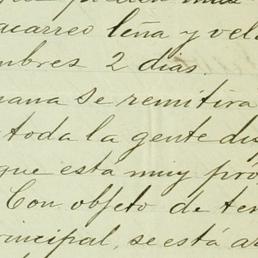 acarreo leña y vel
mbres 2 dias.
ana se remitira
toda la gente du
que esta muy pró
Con objeto de ten
rincipal, se está a